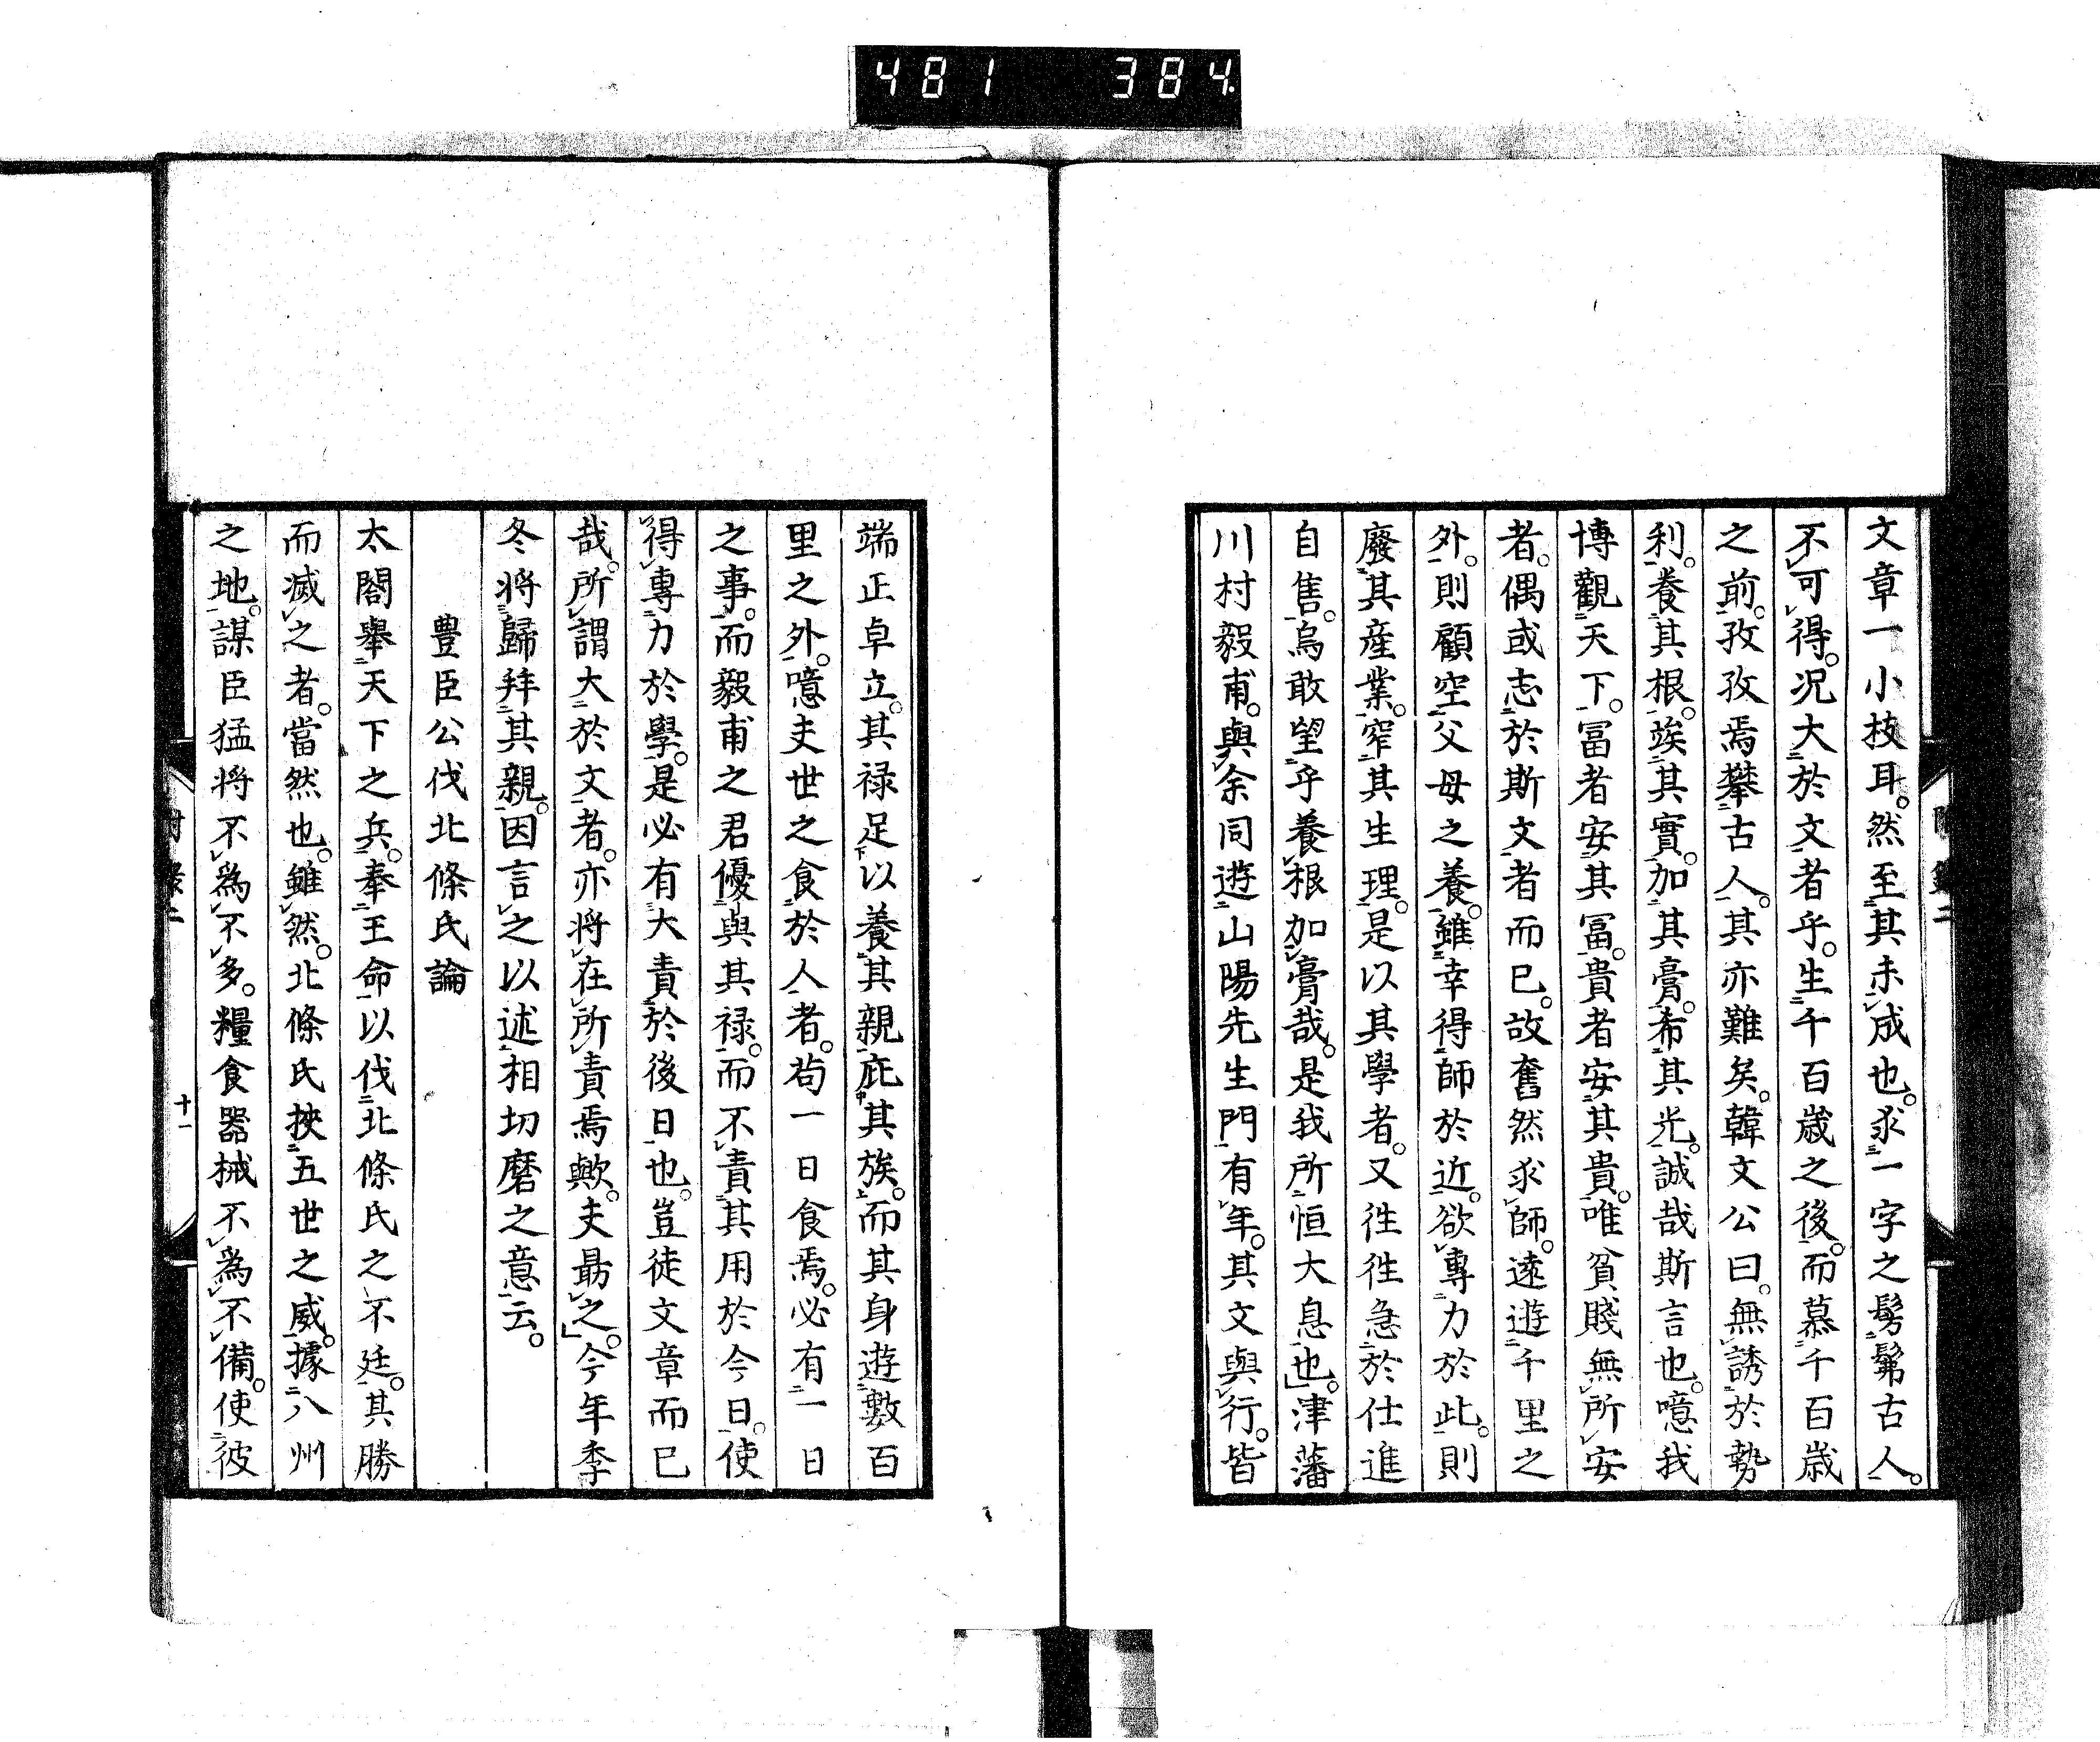 481 384.
文章一小枝耳。然至其未成也。求一字之髣髴古人。
不可得。况大於文者乎。生千百歲之後。而慕千百歲
之前。孜孜焉攀古人。其亦難矣。韓文公曰。無誘於勢
利。養其根。竢其實。加其膏。希其光。誠哉斯言也。噫我
博觀天下。冨者安其冨。貴者安其貴。唯貧賤無所安
者。偶或志於斯文者而已。故奮然求師。遠遊千里之
外。則顧空父母之養。雖幸得師於近。欲專力於此。則
廢其産業。窄其生理。是以其學者。又徃徃急於仕進
自售。烏敢望乎養根加膏哉。是我所恒大息也」。津藩
川村毅甫。與余同遊山陽先生門有年。其文與行。皆
端正卓立。其祿足以養其親庇其族。而其身遊數百
里之外。噫夫世之食於人者。苟一日食焉。必有一日
之事。而毅甫之君優與其祿。而不責其用於今日。使
得專力於學。是必有大責於後日也。豈徒文章而已
哉。所謂大於文者。亦将在所責焉歟。夫勗之」。今年季
冬将歸拜其親。因言之以述相切磨之意云。
豊臣公伐北條氏論
太閤舉天下之兵。奉王命以伐北條氏之不廷。其勝
而滅之者。當然也。雖然。北條氏挾五世之威。據八州
之地。謀臣猛将不爲不多。糧食器械不爲不備。使彼
附錄二
十一